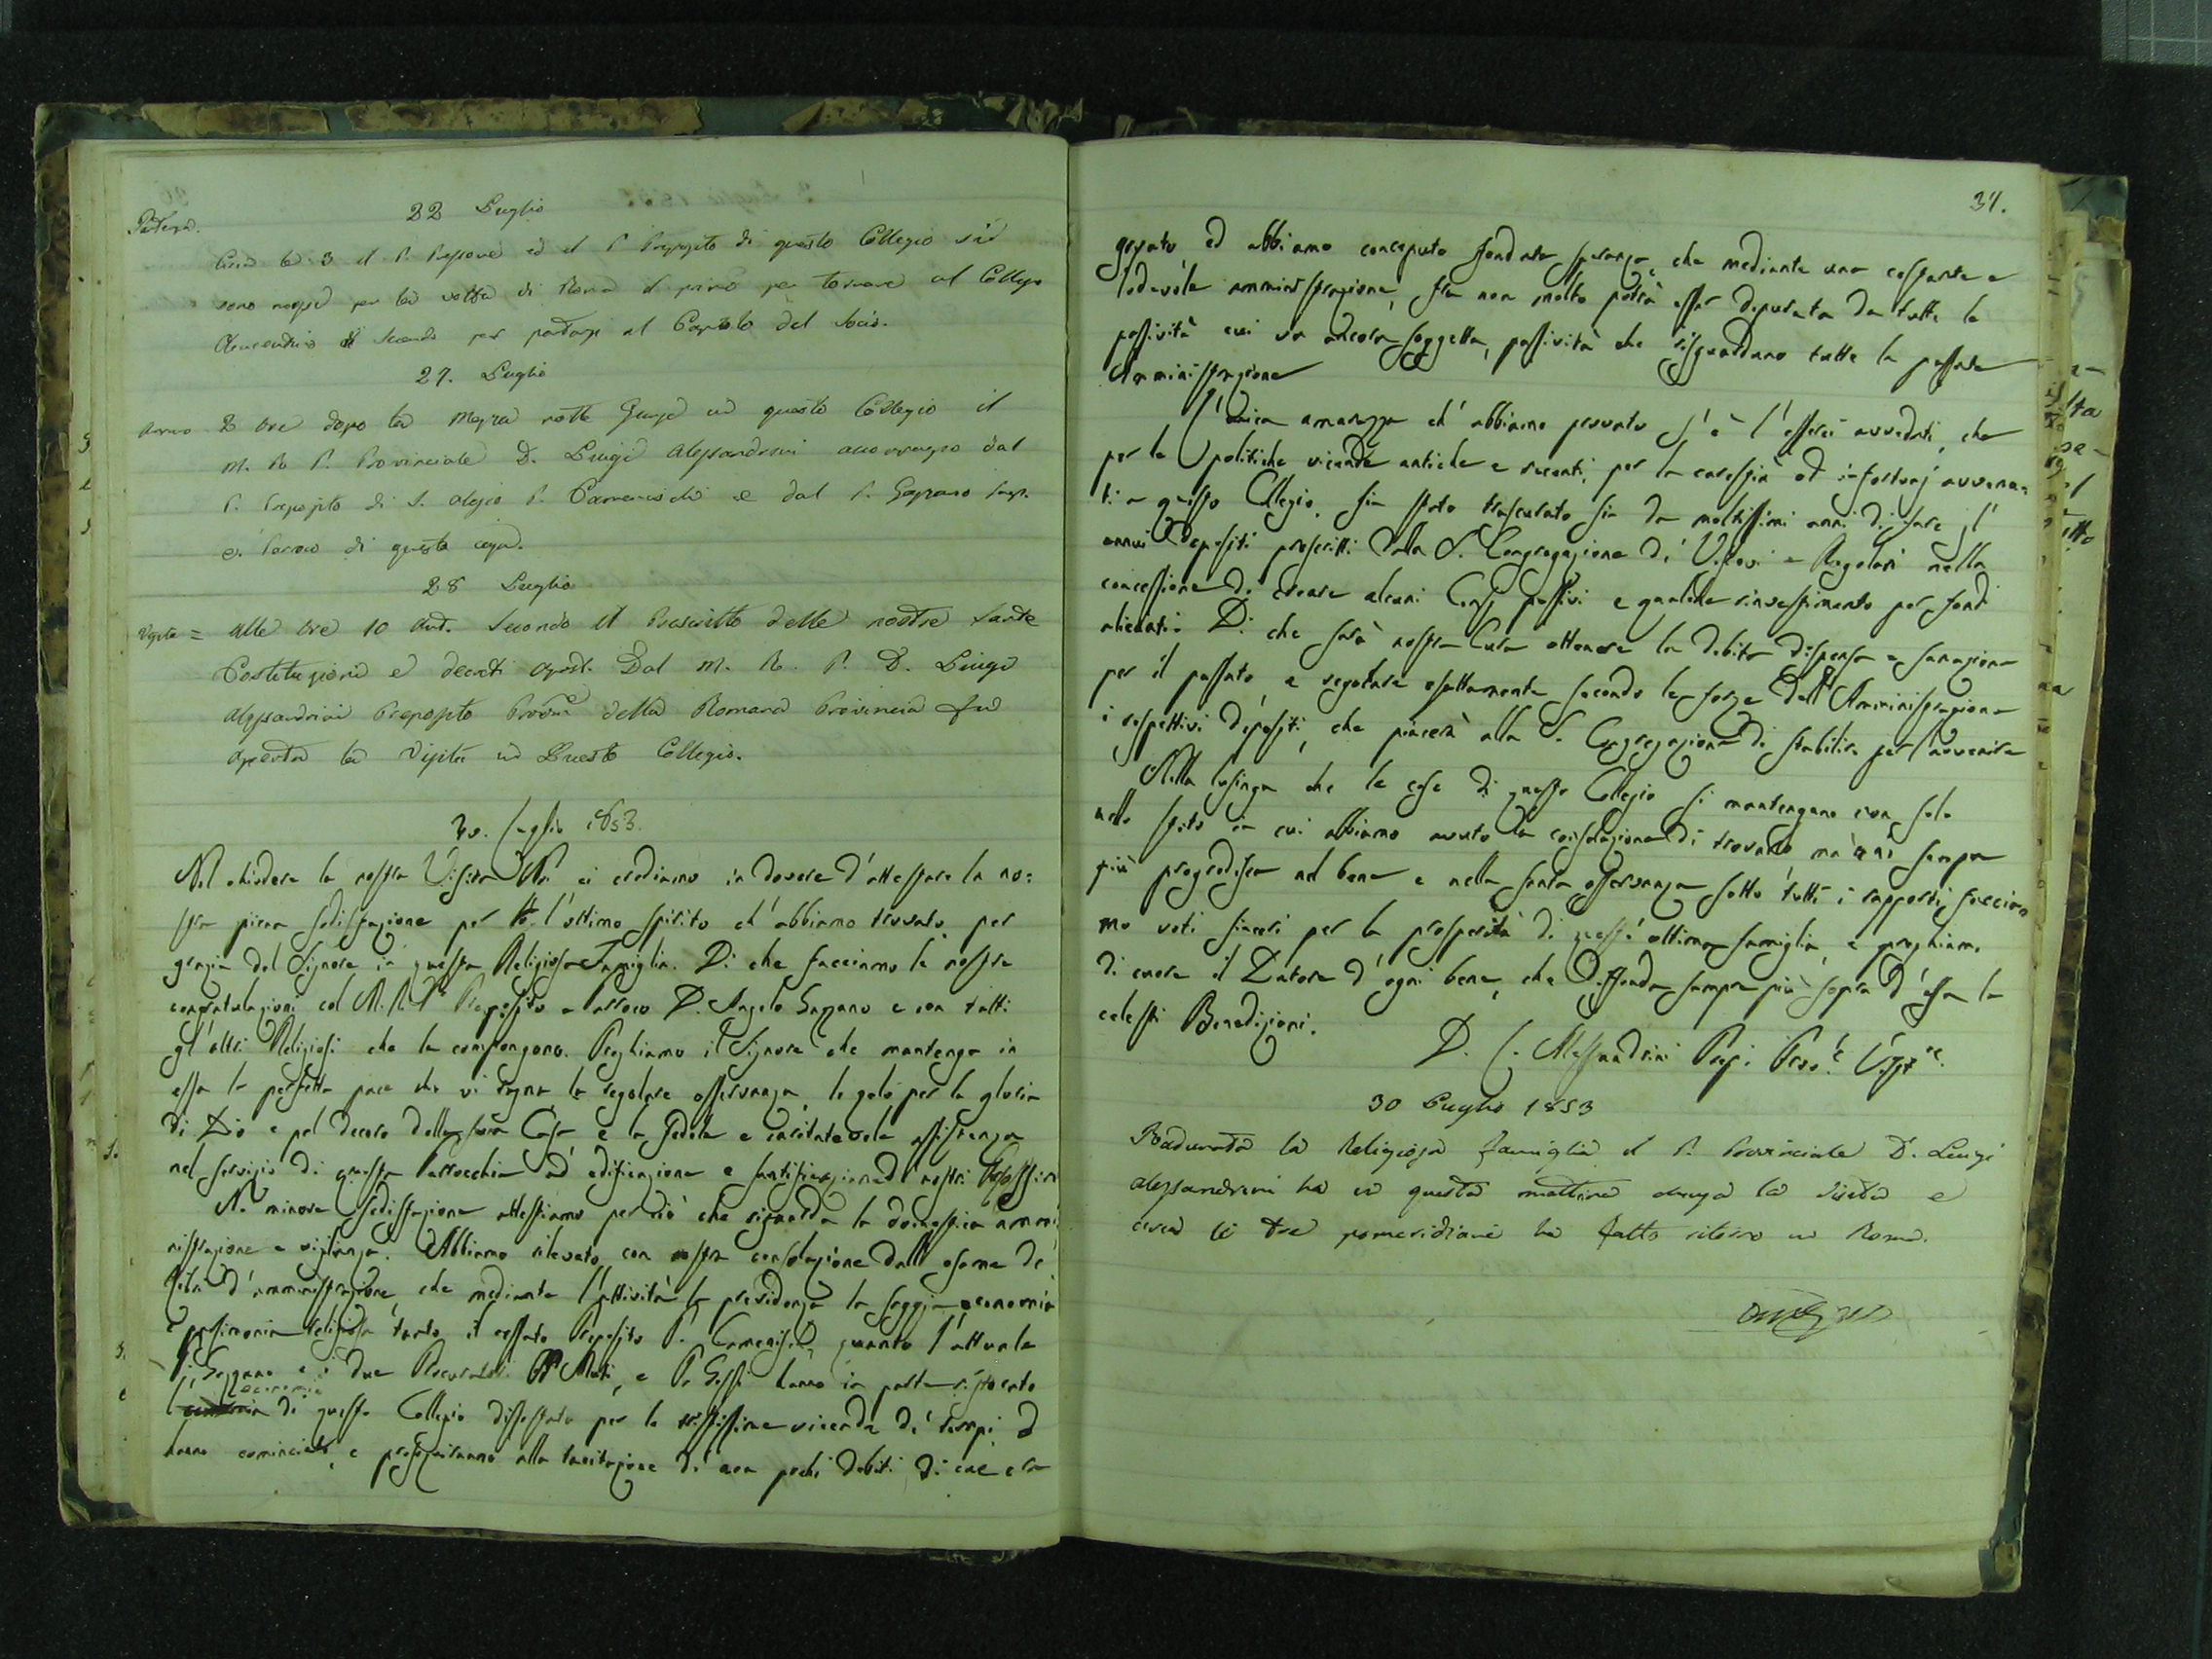 22 Luglio
Partenza.
Circa le 3 il P. Pressoni ed il P. Preposito di questo Collegio si
sono mossi per la volta di Roma il primo per tornare al Collegio
Clementino il secondo per portarsi al Capitolo del Socio.
27. Luglio
Arrivo 2 ore dopo la mezza notte Giunse in questo Collegio il
M. R. P. Provinciale D. Luigi Alessandrini accompagnato dal
P. Preposito di S. Alessio P. Camenischi e dal P. Gazzano
e Parroco di questa casa.
28 Luglio
Visita = Alle ore 10 ant. Secondo il Prescritto delle nostre Sante
Costituzioni e decreti Apost. Dal M. R. P. D. Luigi
Alessandrini Preposito Provle della Romana Provincia fu
aperta la Visita in Questo Collegio.
30. Luglio 1853.
Nel chiudere la nostra Visita Noi ci crediamo in dovere d'attestare la no=
stra piena sodisfazione per l'ottimo spirito ch'abbiamo trovato per
grazia del Signore in questa Religiosa Famiglia. Di che facciamo le nostre
congratulazioni col M. R. Pre Preposito e Parroco D. Angelo Gazzano e con tutti
gl'altri Religiosi che la compongono. Preghiamo il Signore che mantenga in
essa la perfetta pace che vi regna la regolare osservanza, lo zelo per la gloria
di Dio e pel decoro della sua Casa e la fedele e caritatevole assistenza
nel servizio di questa Parrocchia ad edificazione e santificazione de' nostri
Ne minore sodisfazione attestiamo per ciò che riguarda la domestica ammi=
nistrazione e vigilanza. Abbiamo rilevato con nostra consolazione dall'esame de'
libri d'amministrazione, che mediante l'attività la previdenza la saggia economia
e parsimonia religiosa tanto il cessato Preposito P. Camenisch, quanto l'attuale
P. Gazzano e i due Procuratori P. Muti, e P. Gessi hanno in parte ristorato
l'economia di questo Collegio dissestato per le tristissime vicende de' tempi ed
hanno cominciato, e proseguiranno alla tacitazione di non pochi debiti di cui era
37.
gravato, ed abbiamo conceputo fondata speranza, che mediante una costante e
lodevole amministrazione, fra non molto potrà esser depurata da tutte le
passività cui va ancora soggetta, passività che risguardano tutte la passata
Amministrazione
L'unica amarezza ch'abbiamo provato s'è l'esserci avveduti, che
per le politiche vicende antiche e recenti, per la carestia ed infortunj avvenu=
ti a questo Collegio, sia stato trascurato sin da moltissimi anni di fare gl'
annui depositi prescritti dalla S. Congregazione di Vescovi e Regolari nella
concessione di creare alcuni Censi passivi e qualche rinvestimento per fondi
alienati. Di che sarà nostra Cura ottenere la debita dispensa e sanazione
per il passato, e regolare esattamente secondo le forze dell'Amministrazione
i respettivi depositi, che piacerà alla S. Congregazione di stabilire per l'avvenire
Nella lusinga che le cose di questo Collegio si mantengano non solo
nello stato in cui abbiamo avuto la consolazione di trovarlo ma anzi sempre
più progredisca nel bene e nella santa osservanza sotto tutti i rapporti, faccia=
mo voti sinceri per la prosperità di quest'ottima famiglia, e preghiamo
di cuore il Datore d'ogni bene, che diffonda sempre più sopra d'essa le
celesti Benedizioni.
D. L. Alessandrini Prep. Provle Visre
30 Luglio 1853
Radunata la Religiosa famiglia il P. Provinciale D. Luigi
Alessandrini ha in questa mattina chiusa la Visita e
circa le tre pomeridiane ha fatto ritorno in Roma.